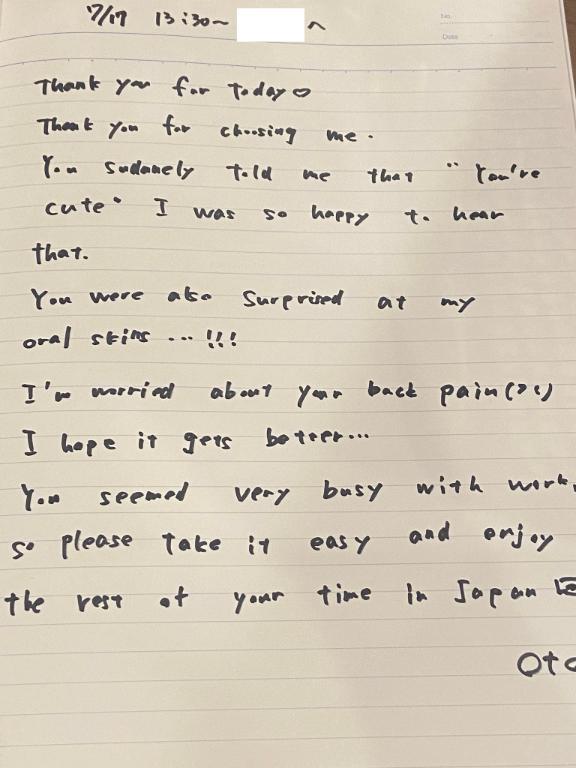 7/17 13:30~ へ
No.
Date
Thank you for today♡
Thank you for choosing me.
You sudanely told me that "You've
cute" I was so happy to hear
that.
You were also surprised at my
oral skins ... !!!
I'm worried about your back pain(><)
I hope it gets better...
You seemed very busy with work,
so please take it easy and enjoy
the rest of your time in Japan